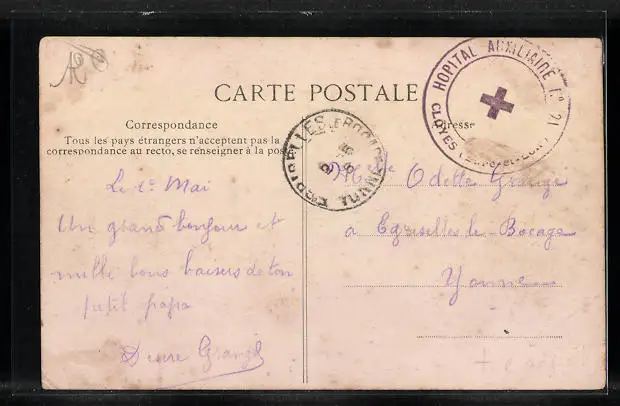 CARTE POSTALE
Correspondance
Tous les pays étrangers n'acceptent pas la
correspondance au recto, se renseigner à la poste
Adresse
HOPITAL AUXILIAIRE N° 21
CLOYES (EURE-ET-LOIR)
EGRISELLES-LE-BOCAGE
YONNE
Le 1er Mai
Un grand bonjour et
mille bons baisers de ton
petit papa
Grange
Melle Odette Grange
à Egriselles-le-Bocage
Yonne